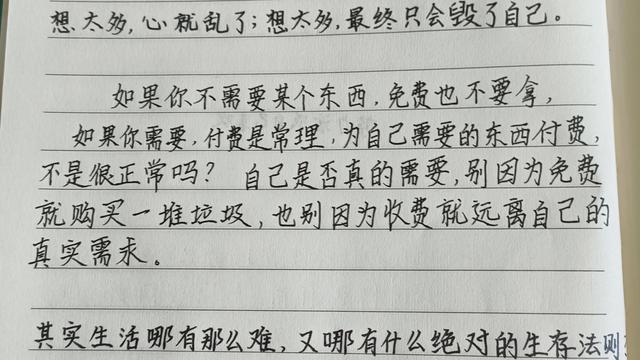 想太多,心就乱了;想太多,最终只会毁了自己。
如果你不需要某个东西,免费也不要拿,
如果你需要,付费是常理,为自己需要的东西付费,
不是很正常吗? 自己是否真的需要,别因为免费
就购买一堆垃圾,也别因为收费就远离自己的
真实需求。
其实生活哪有那么难,又哪有什么绝对的生存法则